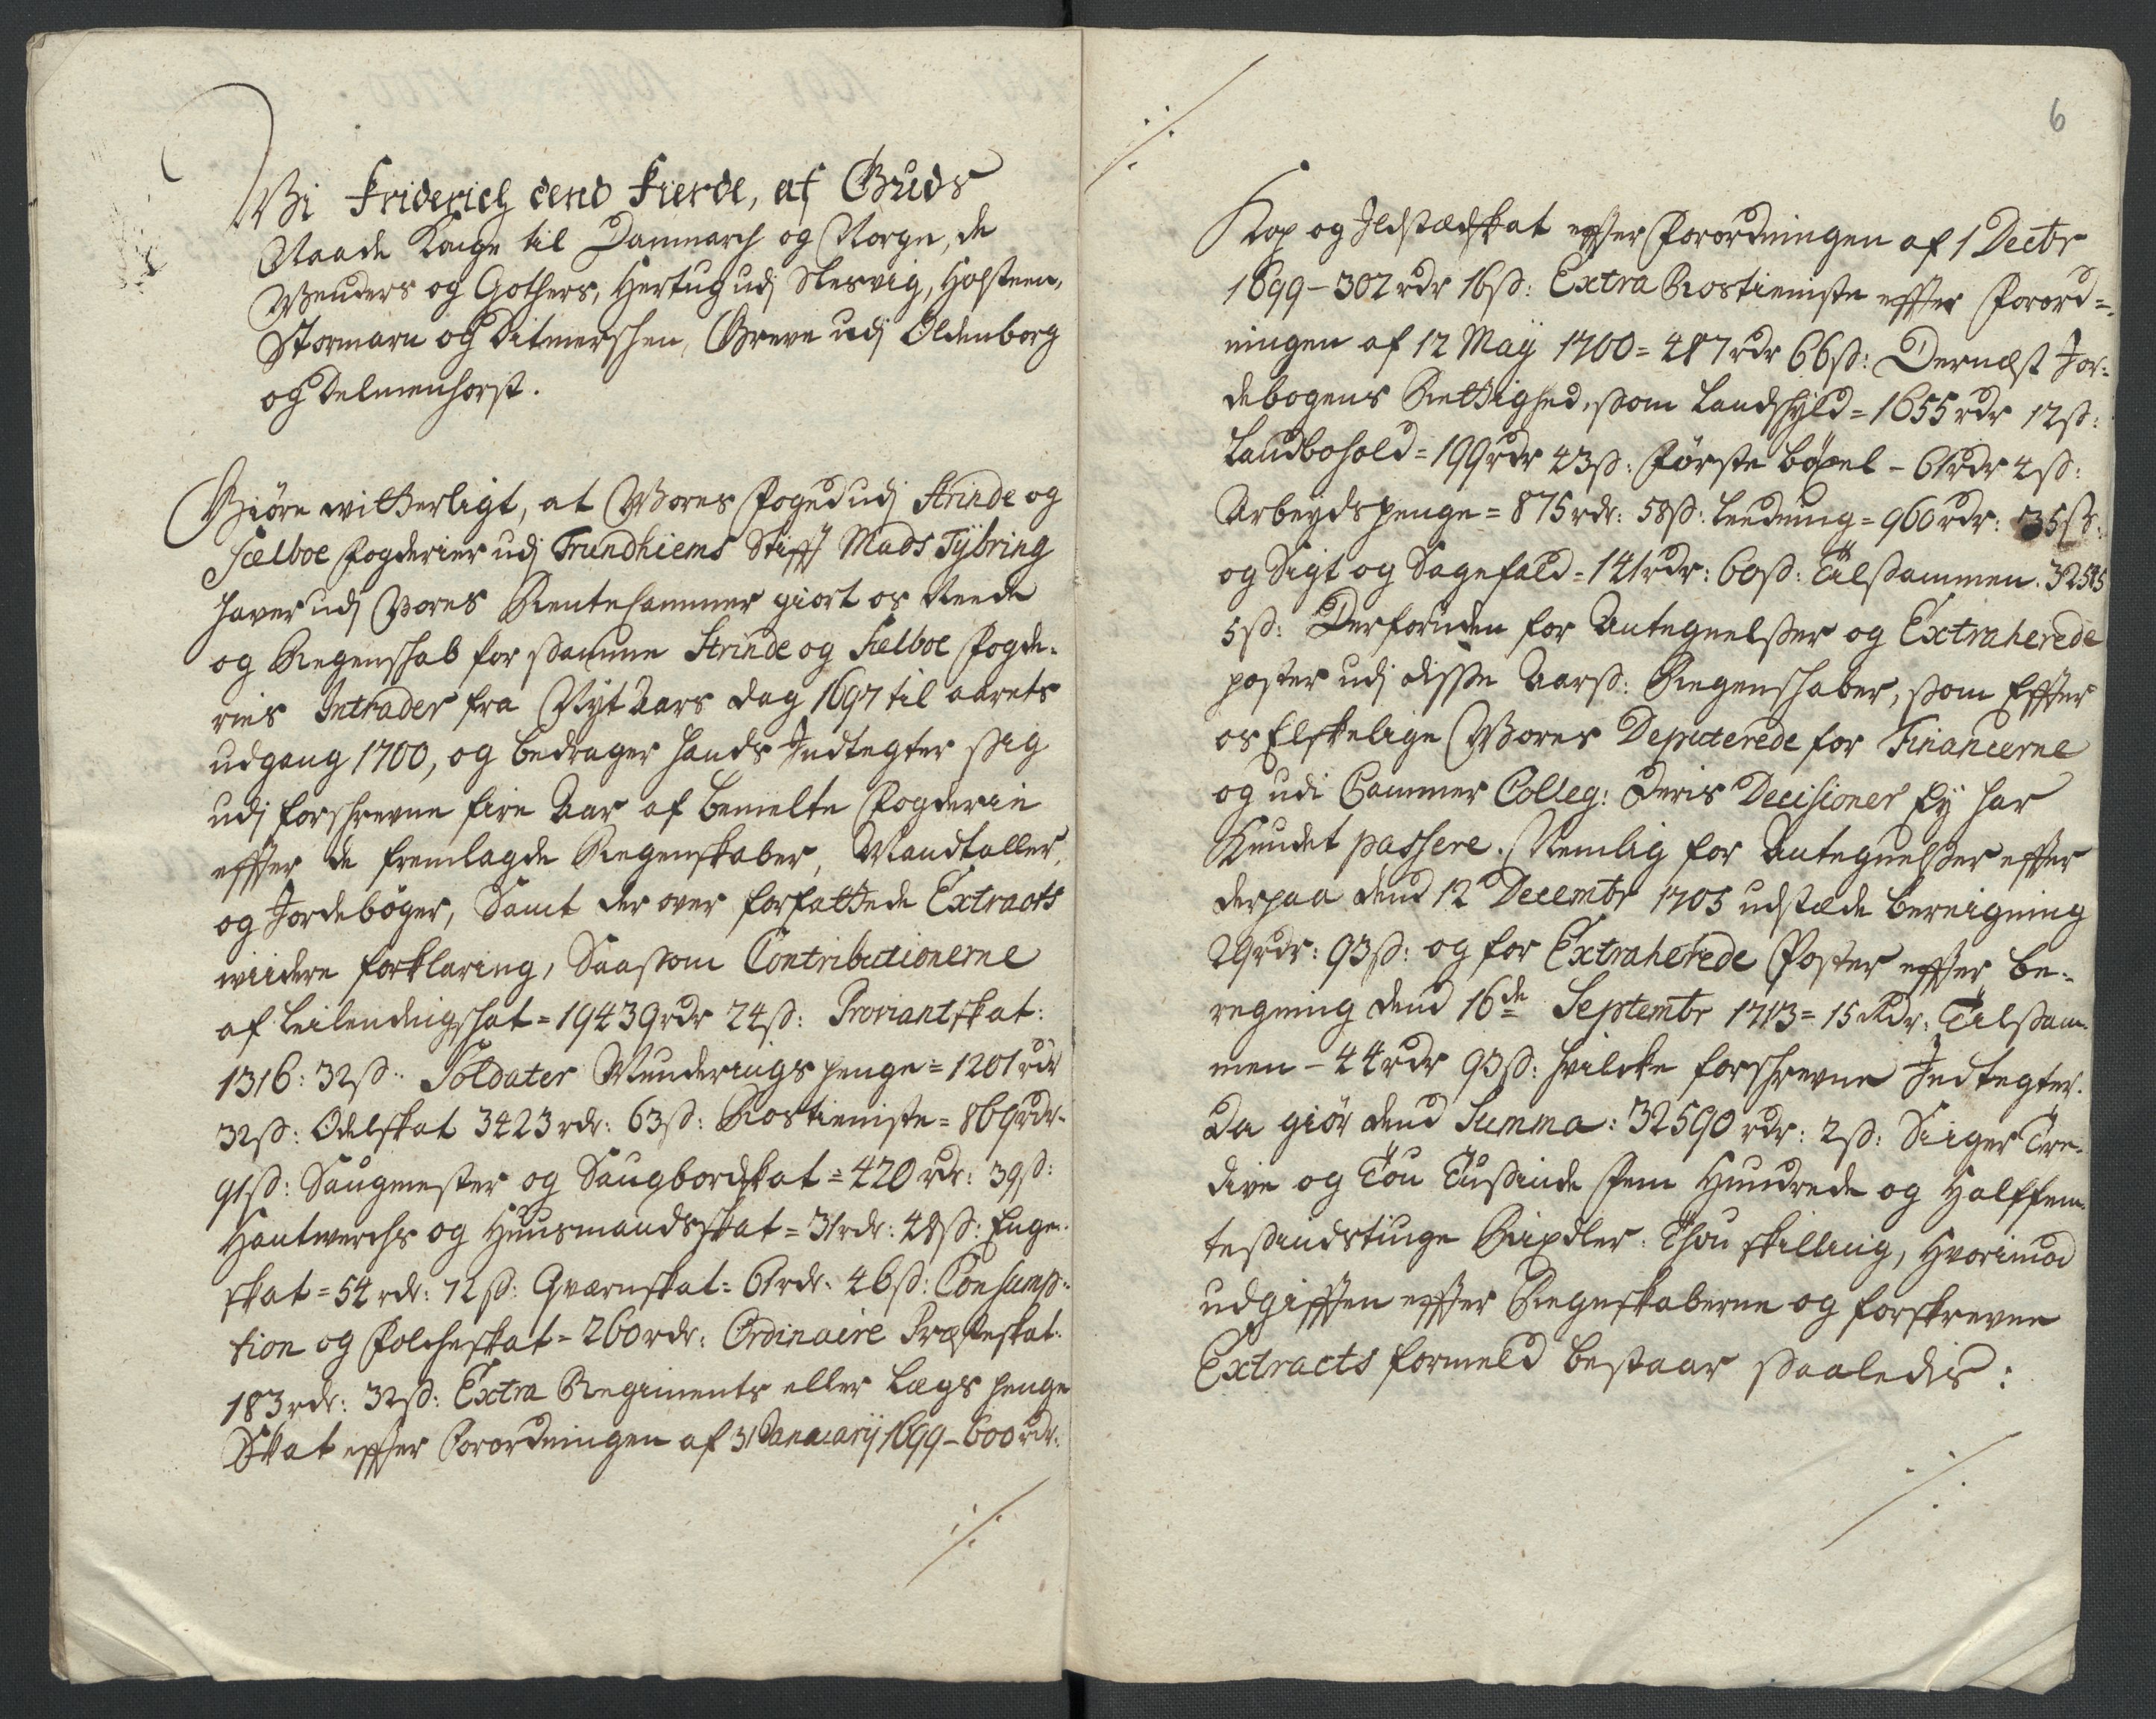 Wi Friderich dend Fierde, af Guds
Naade Konge til Danmarch og Norge, de
Wenders og Gothers, Hertug udj Slesvig, Holsteen,
Stormarn og Ditmerschen, Greve udj Oldenborg
og Delmenhorst.
Giöre witterligt, at Wores Fogud udj Strinde og
Sælboe Fogderier udj Trundhiems Stifft Mads Tÿbring
haver udj Vores Rentekammer giort os Reede
og Regenschab for samme Strinde og Sælboe Fogde-
ries Intrader fra Nÿt Aars dag 1697 til aarets
udgang 1700, og bedrager hands Indtegter sig
udj forschrevne fire Aar af bemelte Fogderie
effter de fremlagde Regenskaber, Mandtaller,
og Jordeböger, Samt der over forfattede Extracts
wiidere forklaring, Saasom Contributionerne
af Leilendingschat = 19439 rdr 24 ß: Proviantskat:
1316: 32 ß: Soldater Munderings penge = 1201 rdr
32 ß: Odelskat 3423 rdr: 63 ß: Rostieniste = 869 rdr-
91 ß: Saugmester og Saugbordskat = 420 rdr: 39 ß:
Hantwerchs og Huusmandsskat = 31 rdr: 48 ß: Enge-
skat = 54 rdr: 72 ß: Qvarnskat = 61 rdr: 46 ß: Consump-
tion og Folcheskat = 260 rdr: Ordinaire Præsteskat:
183 rdr: 32 ß: Extra Regiments eller Lægs penge
Skat effter Forordningen af 31 Januarij 1699 - 600 rdr:
./.
6
./.
Kop og Ildstædskat effter Forordningen af 1 Decbr
1699 - 302 rdr 16 ß: Extra Rostieniste effter Forord-
ningen af 12 Maÿ 1700 = 487 rdr 66 ß: Dernæst Jor-
debogens Rettighed, som Landschÿld = 1655 rdr 12 ß:
Landbohold = 199 rdr 43 ß: Förste böxel - 61 rdr 2 ß:
Arbeyds penge = 875 rdr: 58 ß: Leeding = 960 rdr: 35 ß:
og Sigt og Sagefald = 141 rdr: 60 ß: Tilsammen. 32545
5 ß: Derforuden for Antegnelser og Extraherede
poster udj disse Aars: Regenschaber, som Effter
os Elskelige Wores Deputerede for Financerne
og udi Cammer Colleg: Deris Decisioner Ey har
Kundet passere. Nemlig for Antegnelser effter
derpaa dend 12 Decembr 1705 udstæde bereigning
29 rdr: 93 ß: og for Extraherede Poster effter be-
regning dend 16de Septembr 1713 = 15 Rdr: Tilsam-
men - 44 rdr 93 ß: hvilcke forschrevne Indtegter.
Da giör dend Summa: 32590 rdr: 2 ß: Siiger Tre-
dive og Tou Tusinde Fem Hundrede og Halffem-
tesindstiuge Rixdler: Thou skilling, Hvorimod
udgifften effter Regnskaberne og forskrevne
Extracts formeld bestaar saaledis:
./.